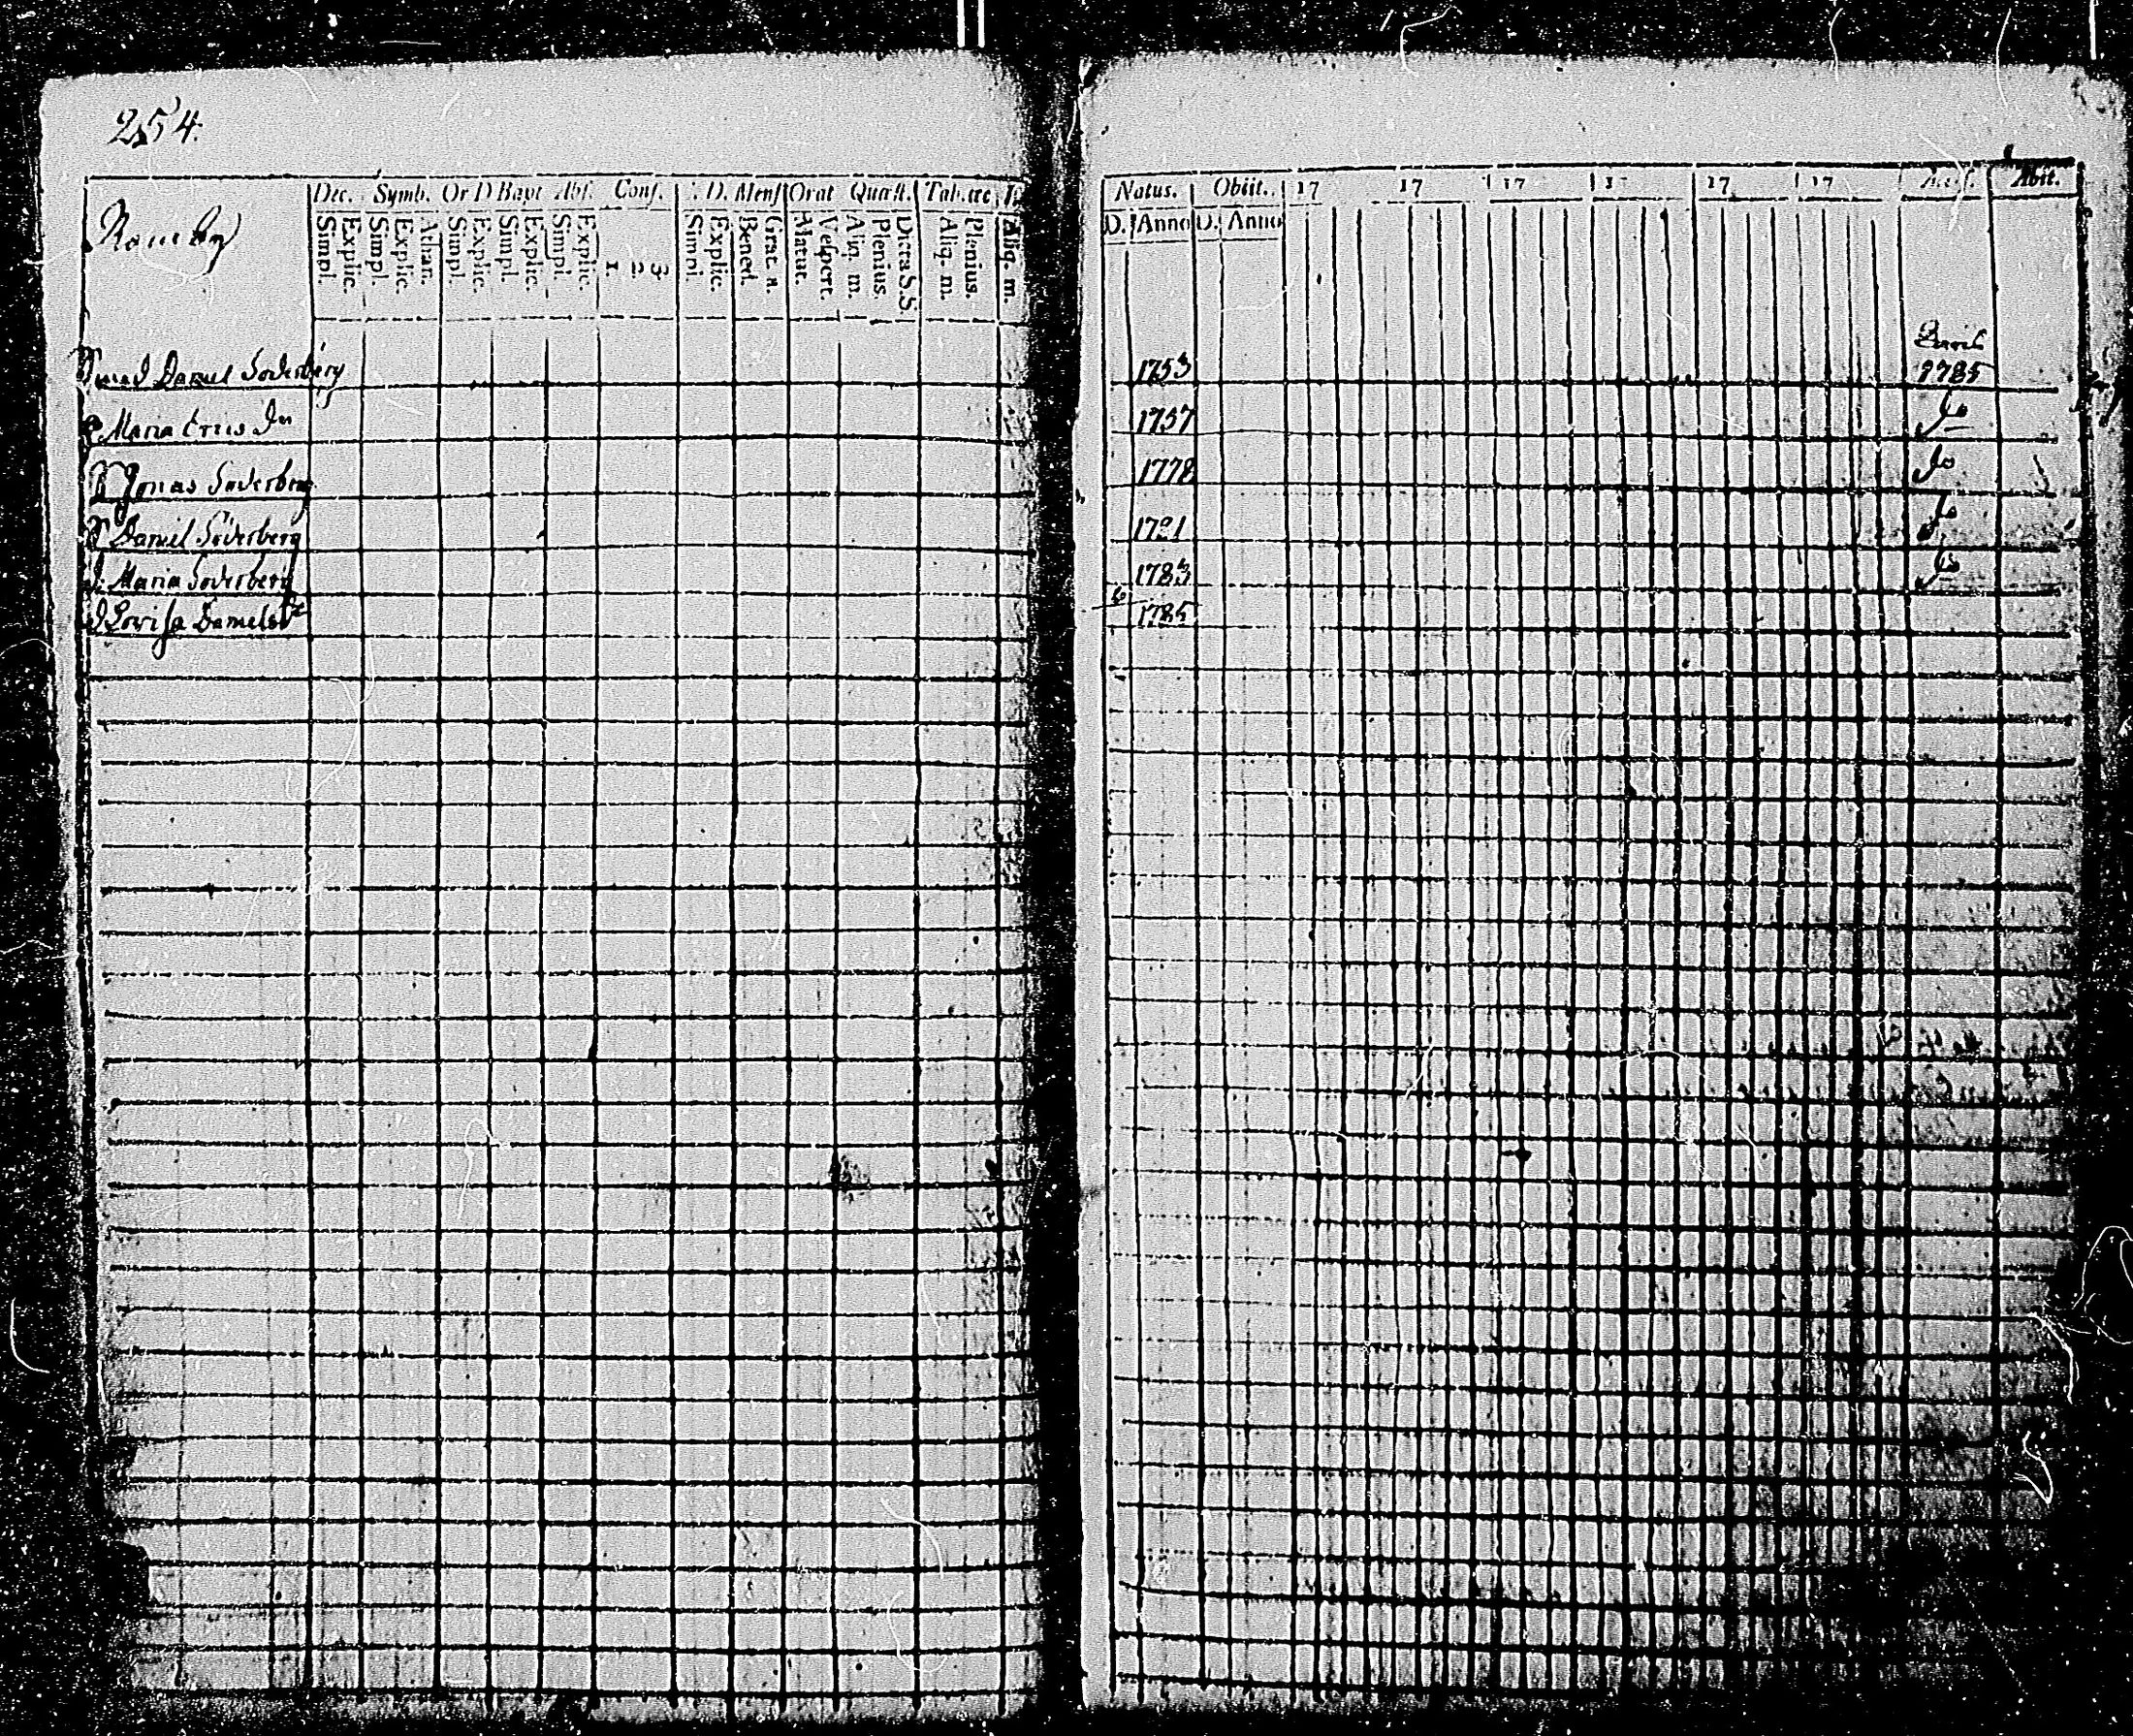 254.
Dec. Symb. Or D Bapt Abs. Conf. D. Mens Orat Quæst. Tab. æc
Simpl. Explic. Simpl. Explic. Athan. Simpl. Explic. Simpl. Explic. Simpl. Explic. 1 2 3 Simpl. Explic. Bened. Grat. a. Matut. Vespert. Aliq. m. Plenius. Dicta S.S. Aliq. m. Plenius. Aliq. m.
Daniel Söderberg
Maria Ersis Dr
Jonas Söderberg
Daniel Söderberg
Maria Söderberg
Lovisa Danielsdr
Natus. Obiit. 17 17 17 17 17 17 Access. Abit.
D. Anno D. Anno
1753 1785
1757 do
1778 do
1781 do
1783 do
6 1785